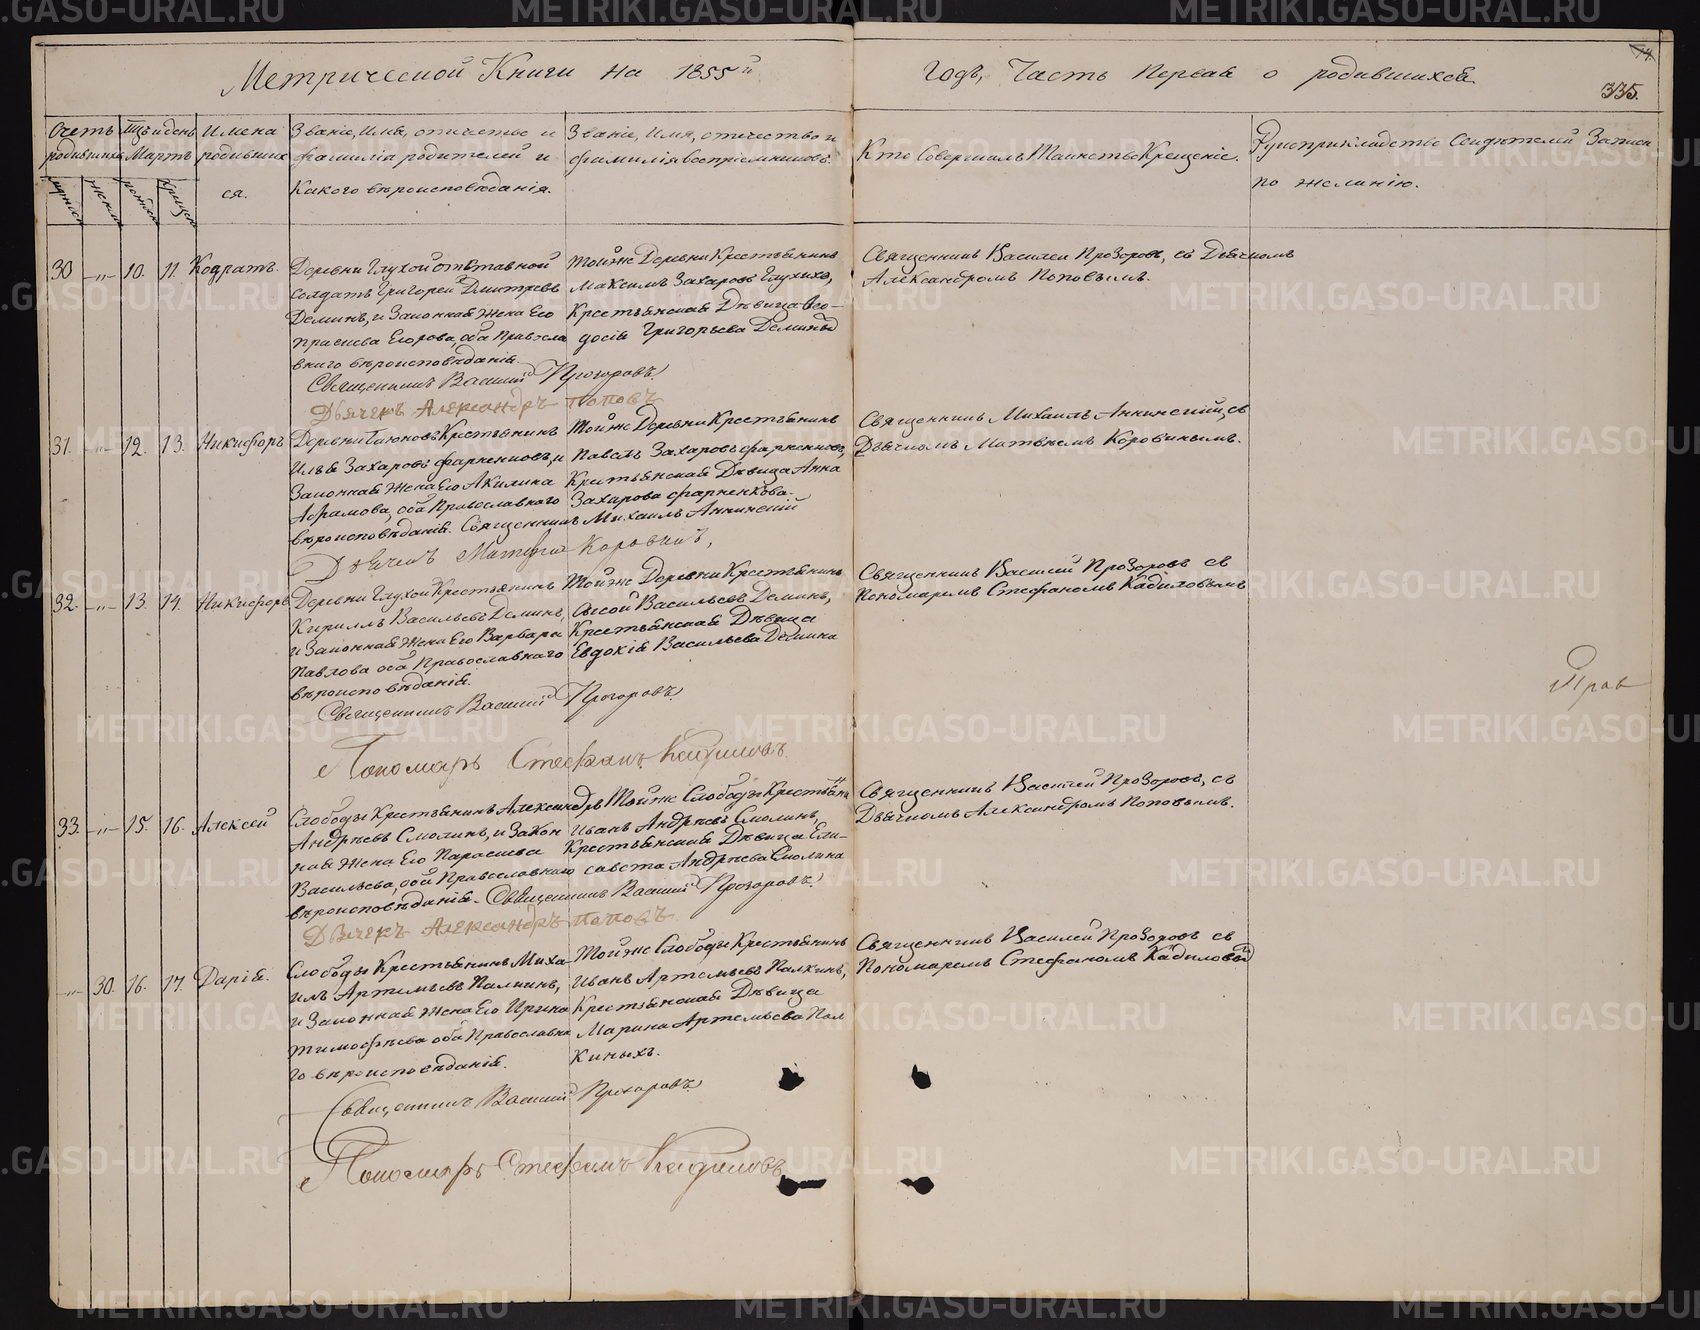 Метрической Книги на 1855й
Годъ, Часть Первая о родившихся
335.
Счетъ родившихся
Мѣсяцъ и день Мартъ
Имена родившихся.
Званіе, Имя, отчество и фамилія родителей и какого вѣроисповѣданія.
Званіе, Имя, отчество и фамилія воспріемниковъ.
Кто совершалъ Таинство Крещеніе.
Рукоприкладство свидѣтелей записи по желанію.
30 -„- 10. 11. Кодратъ.
Деревни Глухой отставной
солдатъ Григорей Дмитревъ
Деминъ, и Законная Жена Его
Прасковья Егорова, оба Правосла
внаго вѣроисповѣданія.
Тойже Деревни Крестьянинъ
Максимъ Захаровъ Глухихъ,
Крестьянская Дѣвица Ѳео-
досія Григорьева Демина
Священникъ Василей Прозоровъ, съ Дьячкомъ
Александромъ Поповымъ.
Священникъ Василий Прозоровъ.
Дьячекъ Александръ Поповъ
31. -„- 12. 13. Никифоръ
Деревни Крестьянинъ
Илья Захаровъ Фарненковъ, и
Законная Жена Его Акилина
Абрамова, оба Православнаго
вѣроисповѣданія.
Тойже Деревни Крестьянинъ
Павелъ Захаровъ Фарненковъ,
Крестьянская Дѣвица Анна
Захарова Фарненкова.
Священникъ Михаилъ Аннинский, съ
Дьячкомъ Матвѣемъ Коровинымъ.
Священникъ Михаилъ Аннинский
Дьячекъ Матвей Коровинъ,
32. -„- 13. 14. Никифоръ
Деревни Глухой Крестьянинъ
Кириллъ Васильевъ Деминъ,
и Законная Жена Его Варвара
Павлова оба Православнаго
вѣроисповѣданія.
Тойже Деревни Крестьянинъ
Сысой Васильевъ Деминъ,
Крестьянская Дѣвица
Евдокія Васильева Демина
Священникъ Василей Прозоровъ съ
Пономаремъ Стефаномъ Кадиловымъ
Священникъ Василий Прозоровъ.
Пономарь Стефанъ Кадиловъ.
33. -„- 15. 16. Алексей
Слободы Крестьянинъ Александръ
Андрѣевъ Смолинъ, и Закон
ная Жена Его Парасковья
Васильева, оба Православнаго
вѣроисповѣданія.
Тойже Слободы Крестьянинъ
Иванъ Андрѣевъ Смолинъ,
Крестьянская Дѣвица Ели-
савета Андрѣева Смолина
Священникъ Василей Прозоровъ, съ
Дьячкомъ Александромъ Поповымъ.
Священникъ Василий Прозоровъ.
Дьячекъ Александръ Поповъ
-„- 30. 16. 17. Дарія.
Слободы Крестьянинъ Миха
илъ Артемьевъ Палкинъ,
и Законная Жена Его Ирина
Тимофѣева оба Православна
го вѣроисповѣданія.
Тойже Слободы Крестьянинъ
Иванъ Артемьевъ Палкинъ,
Крестьянская Дѣвица
Марина Артемьева Пал
киныхъ.
Священникъ Василей Прозоровъ съ
Пономаремъ Стефаномъ Кадиловы
Священникъ Василий Прозоровъ
Пономарь Стефанъ Кадиловъ
METRIKI.GASO-URAL.RU